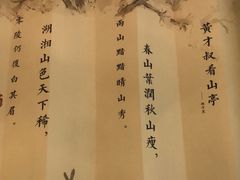 黃才叔看山亭
春山葉潤秋山瘦，
雨山黯黯晴山秀。
湖湘山色天下稀，
零陵仍復白其眉。